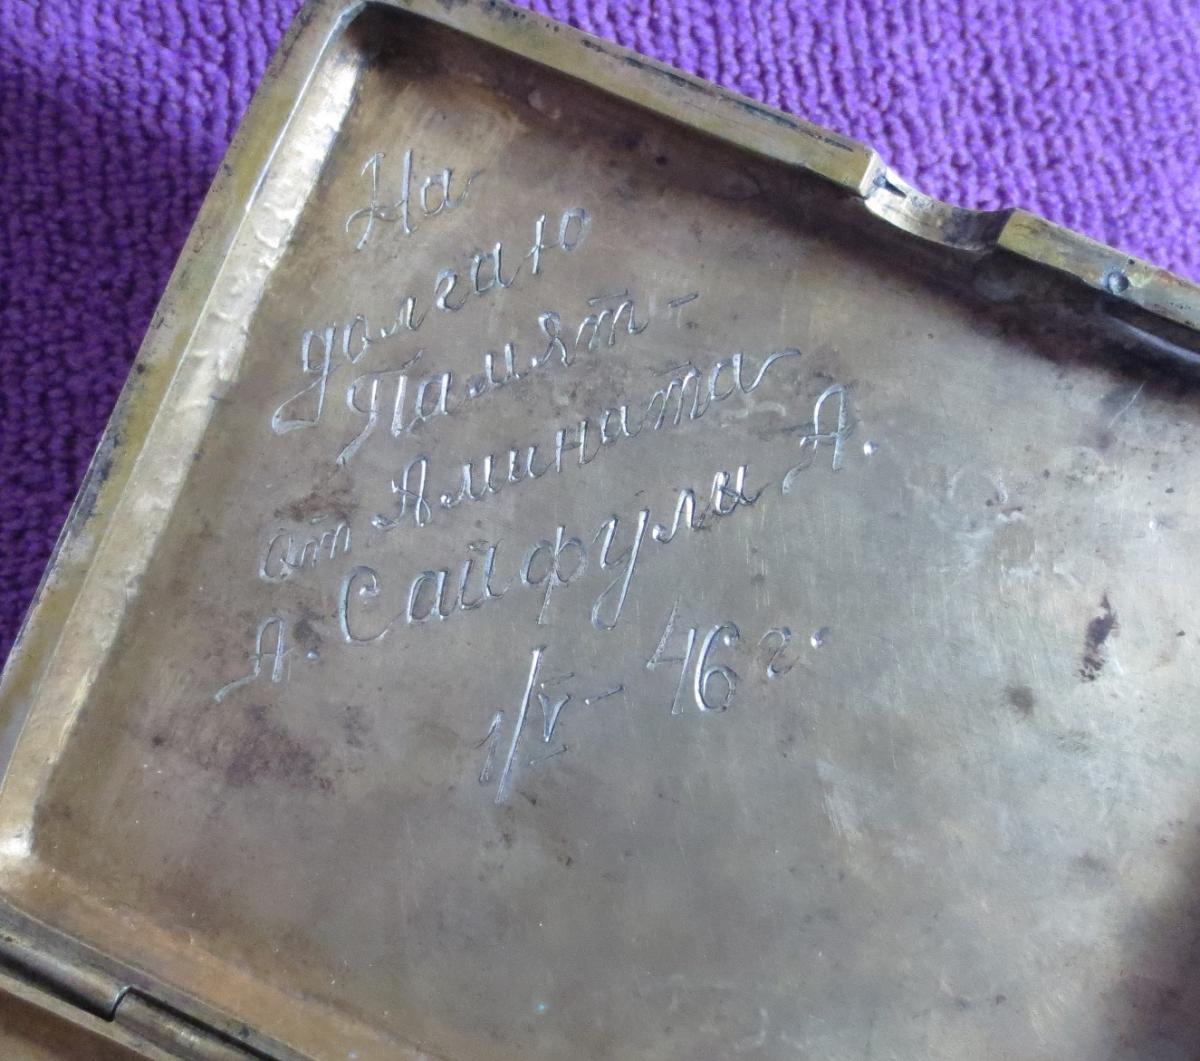 На
долгаю
Память-
от Ямината
А. Сайфули А.
1/V- 46 г.